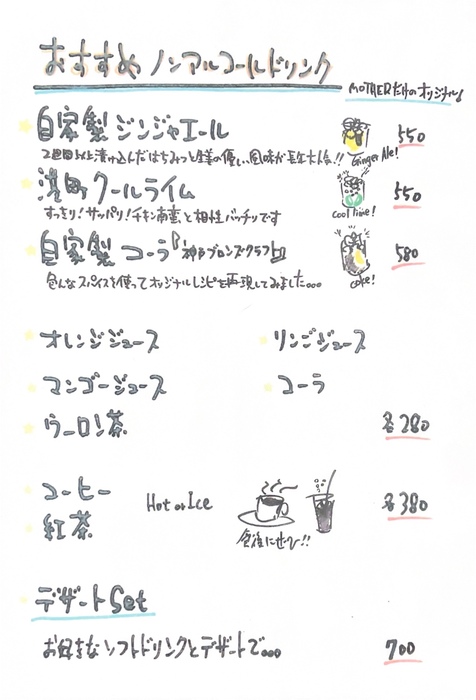 おすすめ ノンアルコールドリンク
MOTHERだけのオリジナル!
自家製 ジンジャエール 550
2週間以上漬け込んだはちみつと生姜の優しい風味が長年大人気!!
Ginger Ale!
クールライム 550
すっきり!サッパリ!チキン南蛮と相性バッチリです
cool lime!
自家製 コーラ ブロンズクラフト 580
色んなスパイスを使ってオリジナルレシピを再現してみました。。。
coke!
オレンジジュース リンゴジュース
マンゴージュース コーラ
ウーロン茶 各280
コーヒー Hot or Ice 各380
紅茶
食後にぜひ!!
デザートSet
お好きなソフトドリンクとデザートで。。。 700